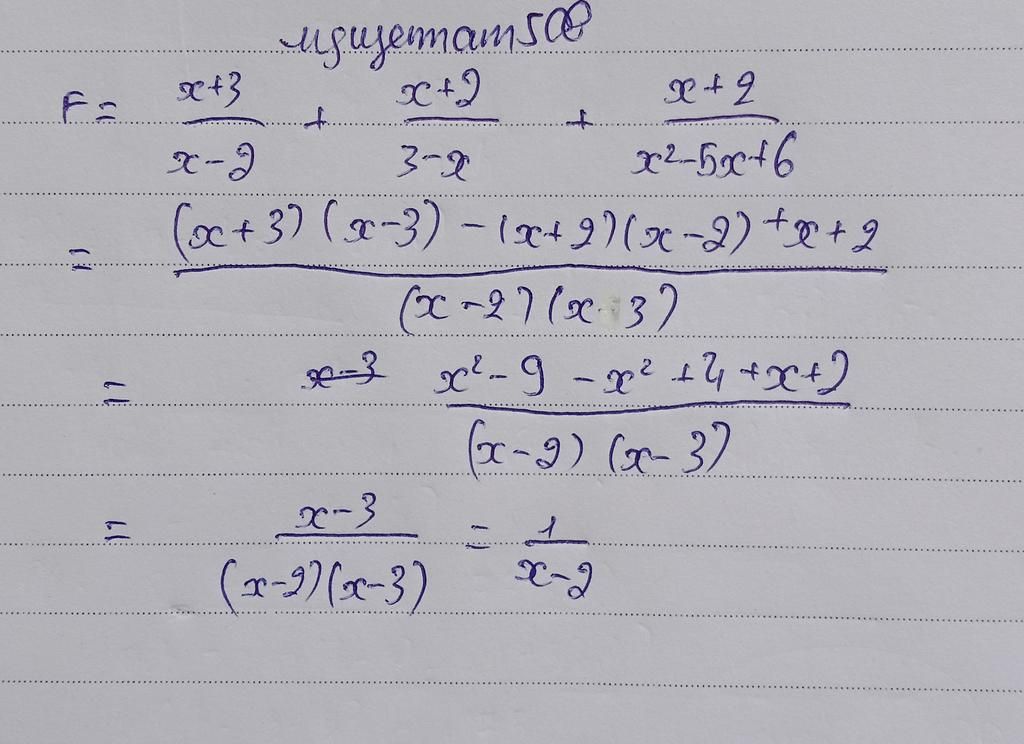 nguyentam508
F = \frac{x+3}{x-2} + \frac{x+2}{3-x} + \frac{x+2}{x²-5x+6}
= \frac{(x+3)(x-3) - (x+2)(x-2) + x+2}{(x-2)(x-3)}
= ~~x-3~~ \frac{x²-9-x²+4+x+2}{(x-2)(x-3)}
= \frac{x-3}{(x-2)(x-3)} = \frac{1}{x-2}